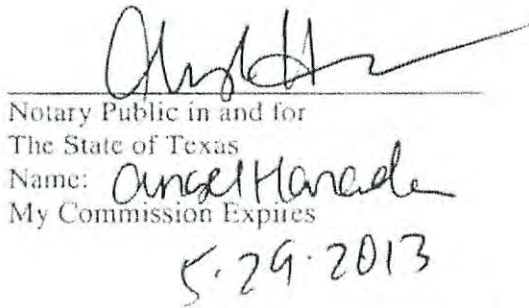 Notary Public in and for
The State of Texas
Name: Angel Hanada
My Commission Expires
5.29.2013